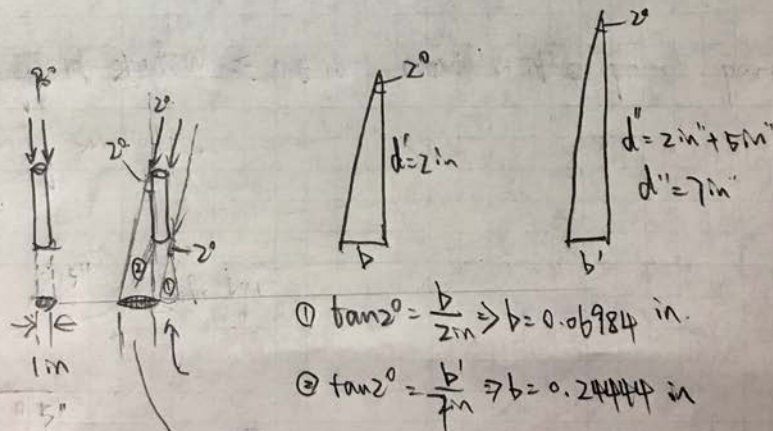 2°
2°
2°
2°
2°
d'=2in
b
2°
d"=2in"+5in"
d"=7in"
b'
②
①
1in
5"
① tan2° = b/2in ⇒ b=0.06984 in.
② tan2° = b'/7in ⇒ b=0.24444 in